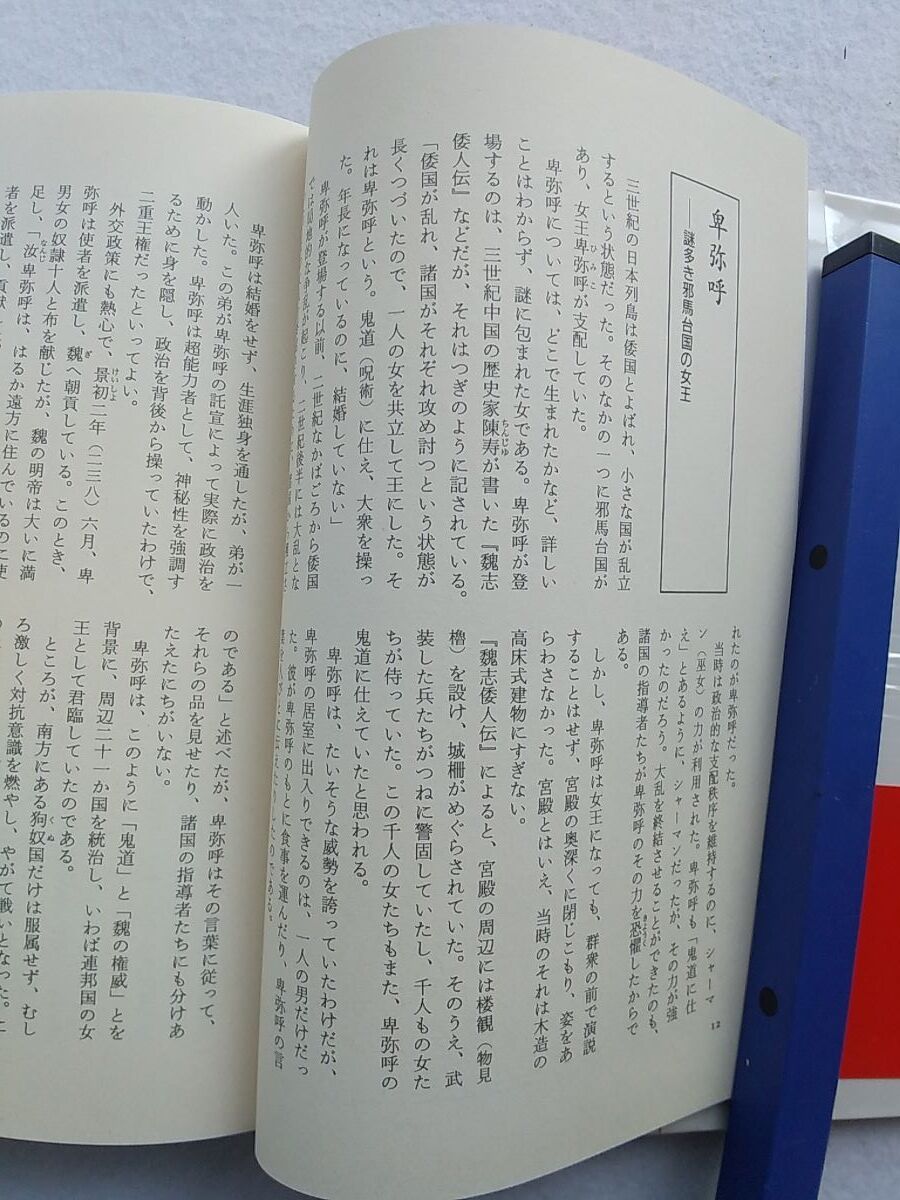 卑弥呼
──謎多き邪馬台国の女王
三世紀の日本列島は倭国とよばれ、小さな国が乱立
するという状態だった。そのなかの一つに邪馬台国が
あり、女王卑弥呼が支配していた。
卑弥呼については、どこで生まれたかなど、詳しい
ことはわからず、謎に包まれた女である。卑弥呼が登
場するのは、三世紀中国の歴史家陳寿が書いた『魏志
倭人伝』などだが、それはつぎのように記されている。
「倭国が乱れ、諸国がそれぞれ攻め討つという状態が
長くつづいたので、一人の女を共立して王にした。そ
れは卑弥呼という。鬼道（呪術）に仕え、大衆を操っ
た。年長になっているのに、結婚していない」
卑弥呼が登場する以前、二世紀なかばごろから倭国
では局地的な争乱が起こり、二世紀後半には大乱とな
れたのが卑弥呼だった。
当時は政治的な支配秩序を維持するのに、シャーマ
ン（巫女）の力が利用された。卑弥呼も「鬼道に仕
え」とあるように、シャーマンだったが、その力が強
かったのだろう。大乱を終結させることができたのも、
諸国の指導者たちが卑弥呼のその力を恐懼したからで
ある。
しかし、卑弥呼は女王になっても、群衆の前で演説
することはせず、宮殿の奥深くに閉じこもり、姿をあ
らわさなかった。宮殿とはいえ、当時のそれは木造の
高床式建物にすぎない。
『魏志倭人伝』によると、宮殿の周辺には楼観（物見
櫓）を設け、城柵がめぐらされていた。そのうえ、武
装した兵たちがつねに警固していたし、千人もの女た
ちが侍っていた。この千人の女たちもまた、卑弥呼の
鬼道に仕えていたと思われる。
卑弥呼は、たいそうな威勢を誇っていたわけだが、
卑弥呼の居室に出入りできるのは、一人の男だけだっ
た。彼が卑弥呼のもとに食事を運んだり、卑弥呼の言
葉を人びとに伝えたりしたのである。
12
卑弥呼は結婚をせず、生涯独身を通したが、弟が一
人いた。この弟が卑弥呼の託宣によって実際に政治を
動かした。卑弥呼は超能力者として、神秘性を強調す
るために身を隠し、政治を背後から操っていたわけで、
二重王権だったといってよい。
外交政策にも熱心で、景初二年（二三八）六月、卑
弥呼は使者を派遣し、魏へ朝貢している。このとき、
男女の奴隷十人と布を献じたが、魏の明帝は大いに満
足し、「汝卑弥呼は、はるか遠方に住んでいるのに使
者を派遣し、貢献
のである」と述べたが、卑弥呼はその言葉に従って、
それらの品を見せたり、諸国の指導者たちにも分けあ
たえたにちがいない。
卑弥呼は、このように「鬼道」と「魏の権威」とを
背景に、周辺二十一か国を統治し、いわば連邦国の女
王として君臨していたのである。
ところが、南方にある狗奴国だけは服属せず、むし
ろ激しく対抗意識を燃やし、やがて戦いとなった。こ